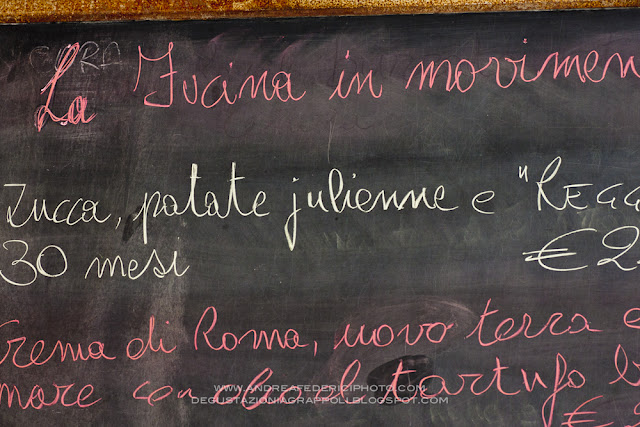 La Fucina in movimen
Zucca, patate julienne e "REGG
30 mesi €2
Crema di Roma, uovo terra e
more con
tartufo b
€
WWW.ANDREAFEDERICIPHOTO.COM
DEGUSTAZIONIAGRAPPOLI.BLOGSPOT.COM